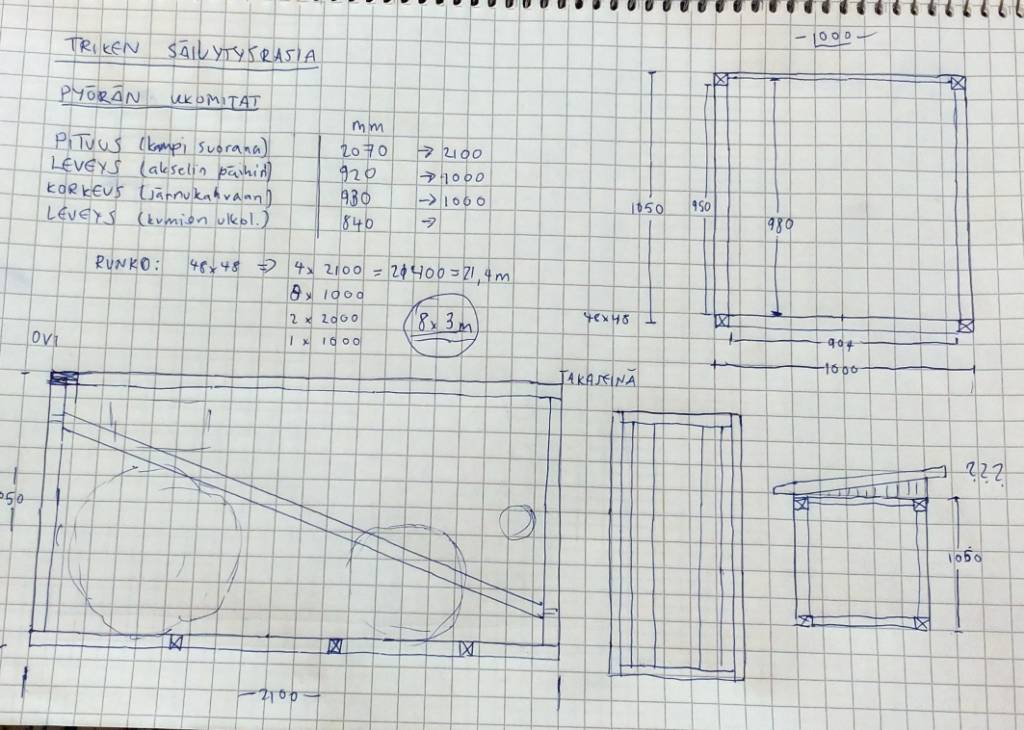 TRIKEN SÄILYTYSRASIA
PYÖRÄN ULKOMITAT
mm
PITUUS (kampi suorana) 2070 → 2100
LEVEYS (akselin päihin) 920 → 1000
KORKEUS (jarrukahvaan) 930 → 1000
LEVEYS (kumien ulkol.) 840 →
RUNKO: 48x48 ⇒ 4 x 2100 = 21400 = 21,4 m
8 x 1000
2 x 2000
1 x 1000
8 x 3m
-1000-
1050
950
980
48x48
904
1000
OVI
TAKASEINÄ
050
-2100-
???
1050